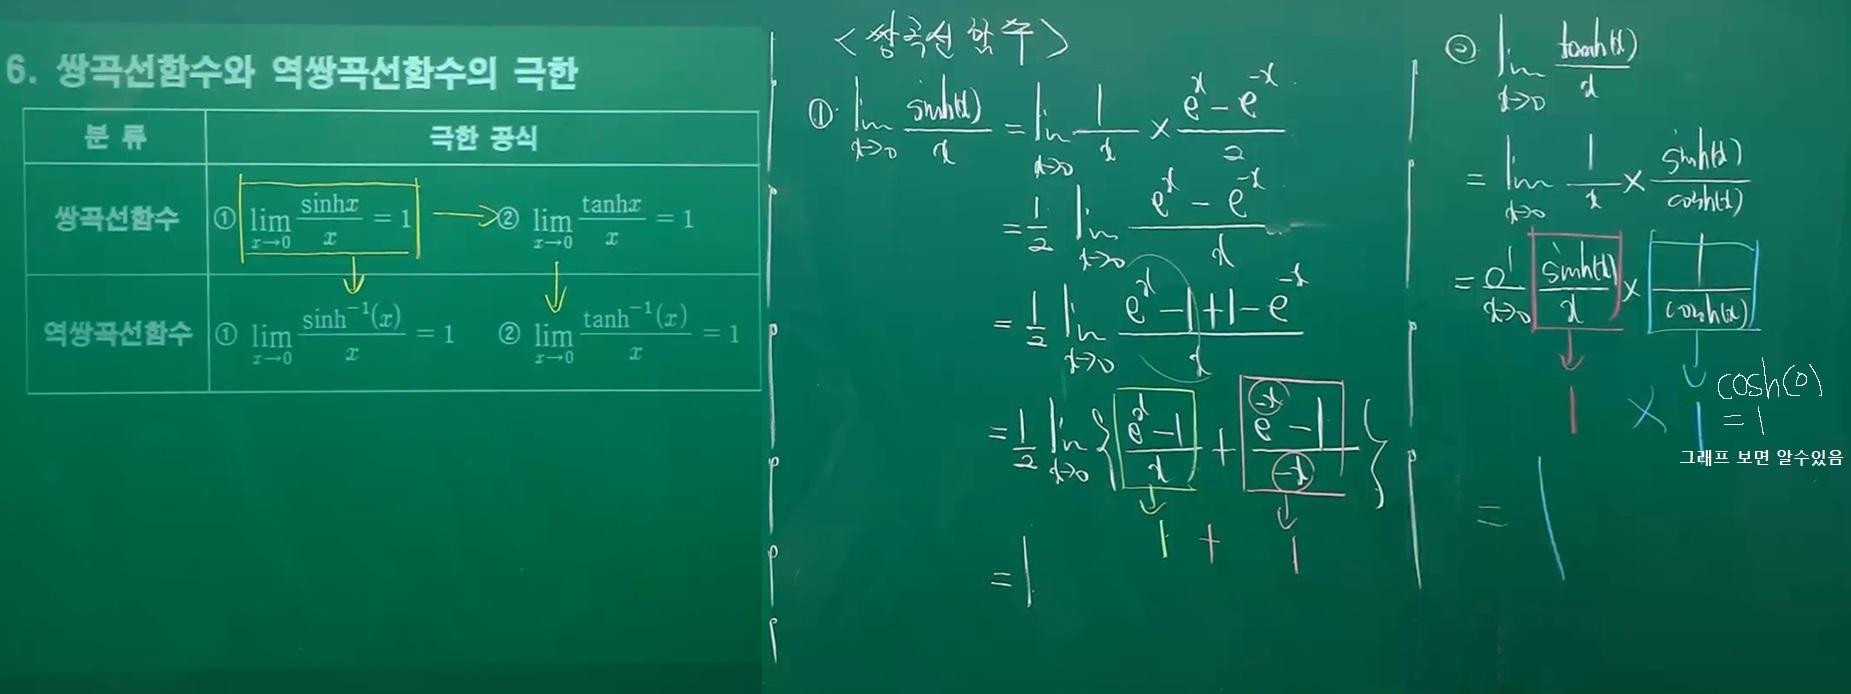 6. 쌍곡선함수와 역쌍곡선함수의 극한
분 류 극한 공식
쌍곡선함수 ① lim x→0 sinhx/x = 1 → ② lim x→0 tanhx/x = 1
역쌍곡선함수 ① lim x→0 sinh⁻¹(x)/x = 1 ② lim x→0 tanh⁻¹(x)/x = 1
<쌍곡선 함수>
① lim x→0 sinh(x)/x = lim x→0 1/x × (e^x - e^-x)/2
= 1/2 lim x→0 (e^x - e^-x)/x
= 1/2 lim x→0 (e^x - 1 + 1 - e^-x)/x
= 1/2 lim x→0 { (e^x - 1)/x + (e^-x - 1)/-x }
1 + 1
= 1
② lim x→0 tanh(x)/x
= lim x→0 1/x × sinh(x)/cosh(x)
= x→0 sinh(x)/x × 1/cosh(x)
1 × 1
cosh(0)
= 1
그래프 보면 알수있음
= 1